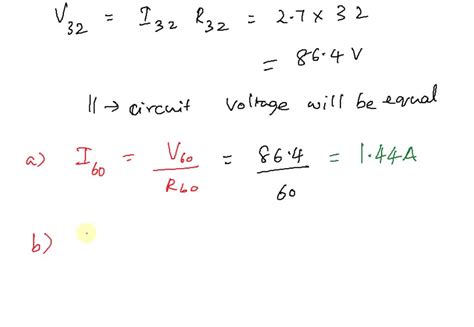 V₃₂ = I₃₂ R₃₂ = 2.7 × 32
= 86.4 V
|| → circuit voltage will be equal
a) I₆₀ = V₆₀ / R₆₀ = 86.4 / 60 = 1.44A
b)